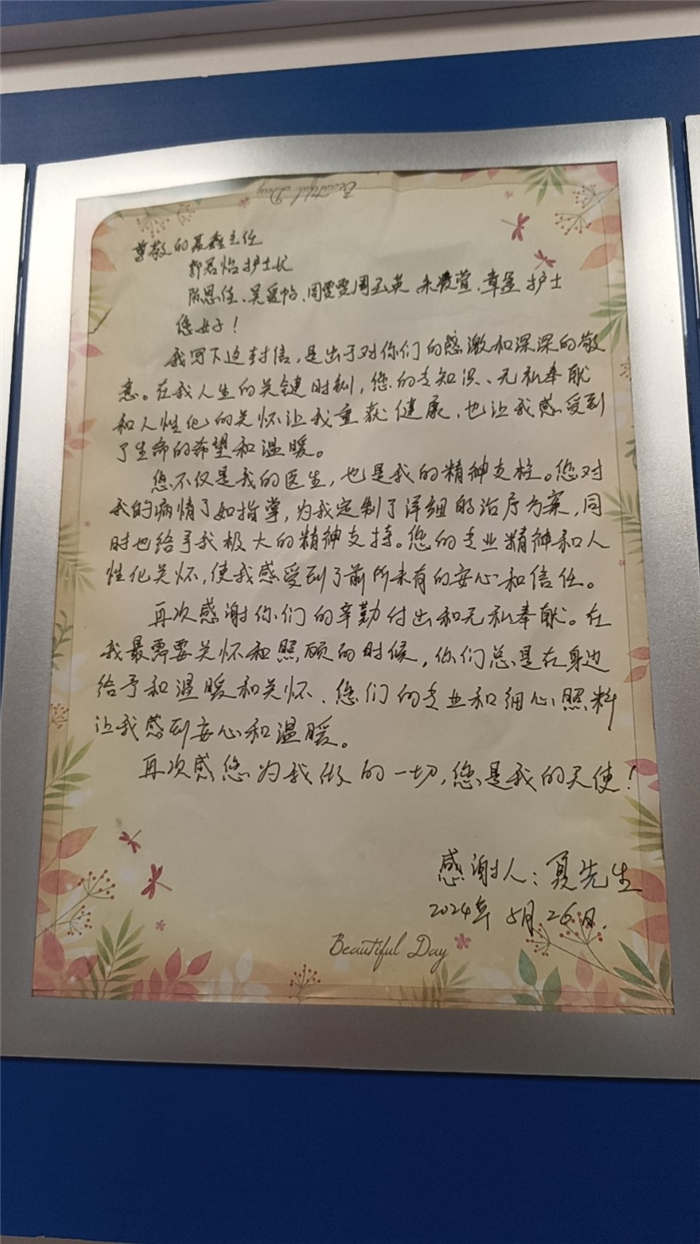 Beautiful Day
尊敬的聂鑫主任
郭君怡护士长
陈思佳、吴爱怡、周雯雯周玉英 朱、章星护士
您好！
我写下这封信，是出于对你们的感激和深深的敬
意。在我人生的关键时刻，您的专知识、无私奉献
和人性化的关怀让我重获健康，也让我感受到
了生命的希望和温暖。
您不仅是我的医生，也是我的精神支柱。您对
我的病情了如指掌，为我定制了详细的治疗方案，同
时也给予我极大的精神支持。您的专业精神和人
性化关怀，使我感受到了前所未有的安心和信任。
再次感谢你们的辛勤付出和无私奉献。在
我最需要关怀和照顾的时候，你们总是在身边
给予和温暖和关怀、您们的专业和细心照料
让我感到安心和温暖。
再次感您为我做的一切，您是我的天使！
感谢人：夏先生
2024年8月26日.
Beautiful Day